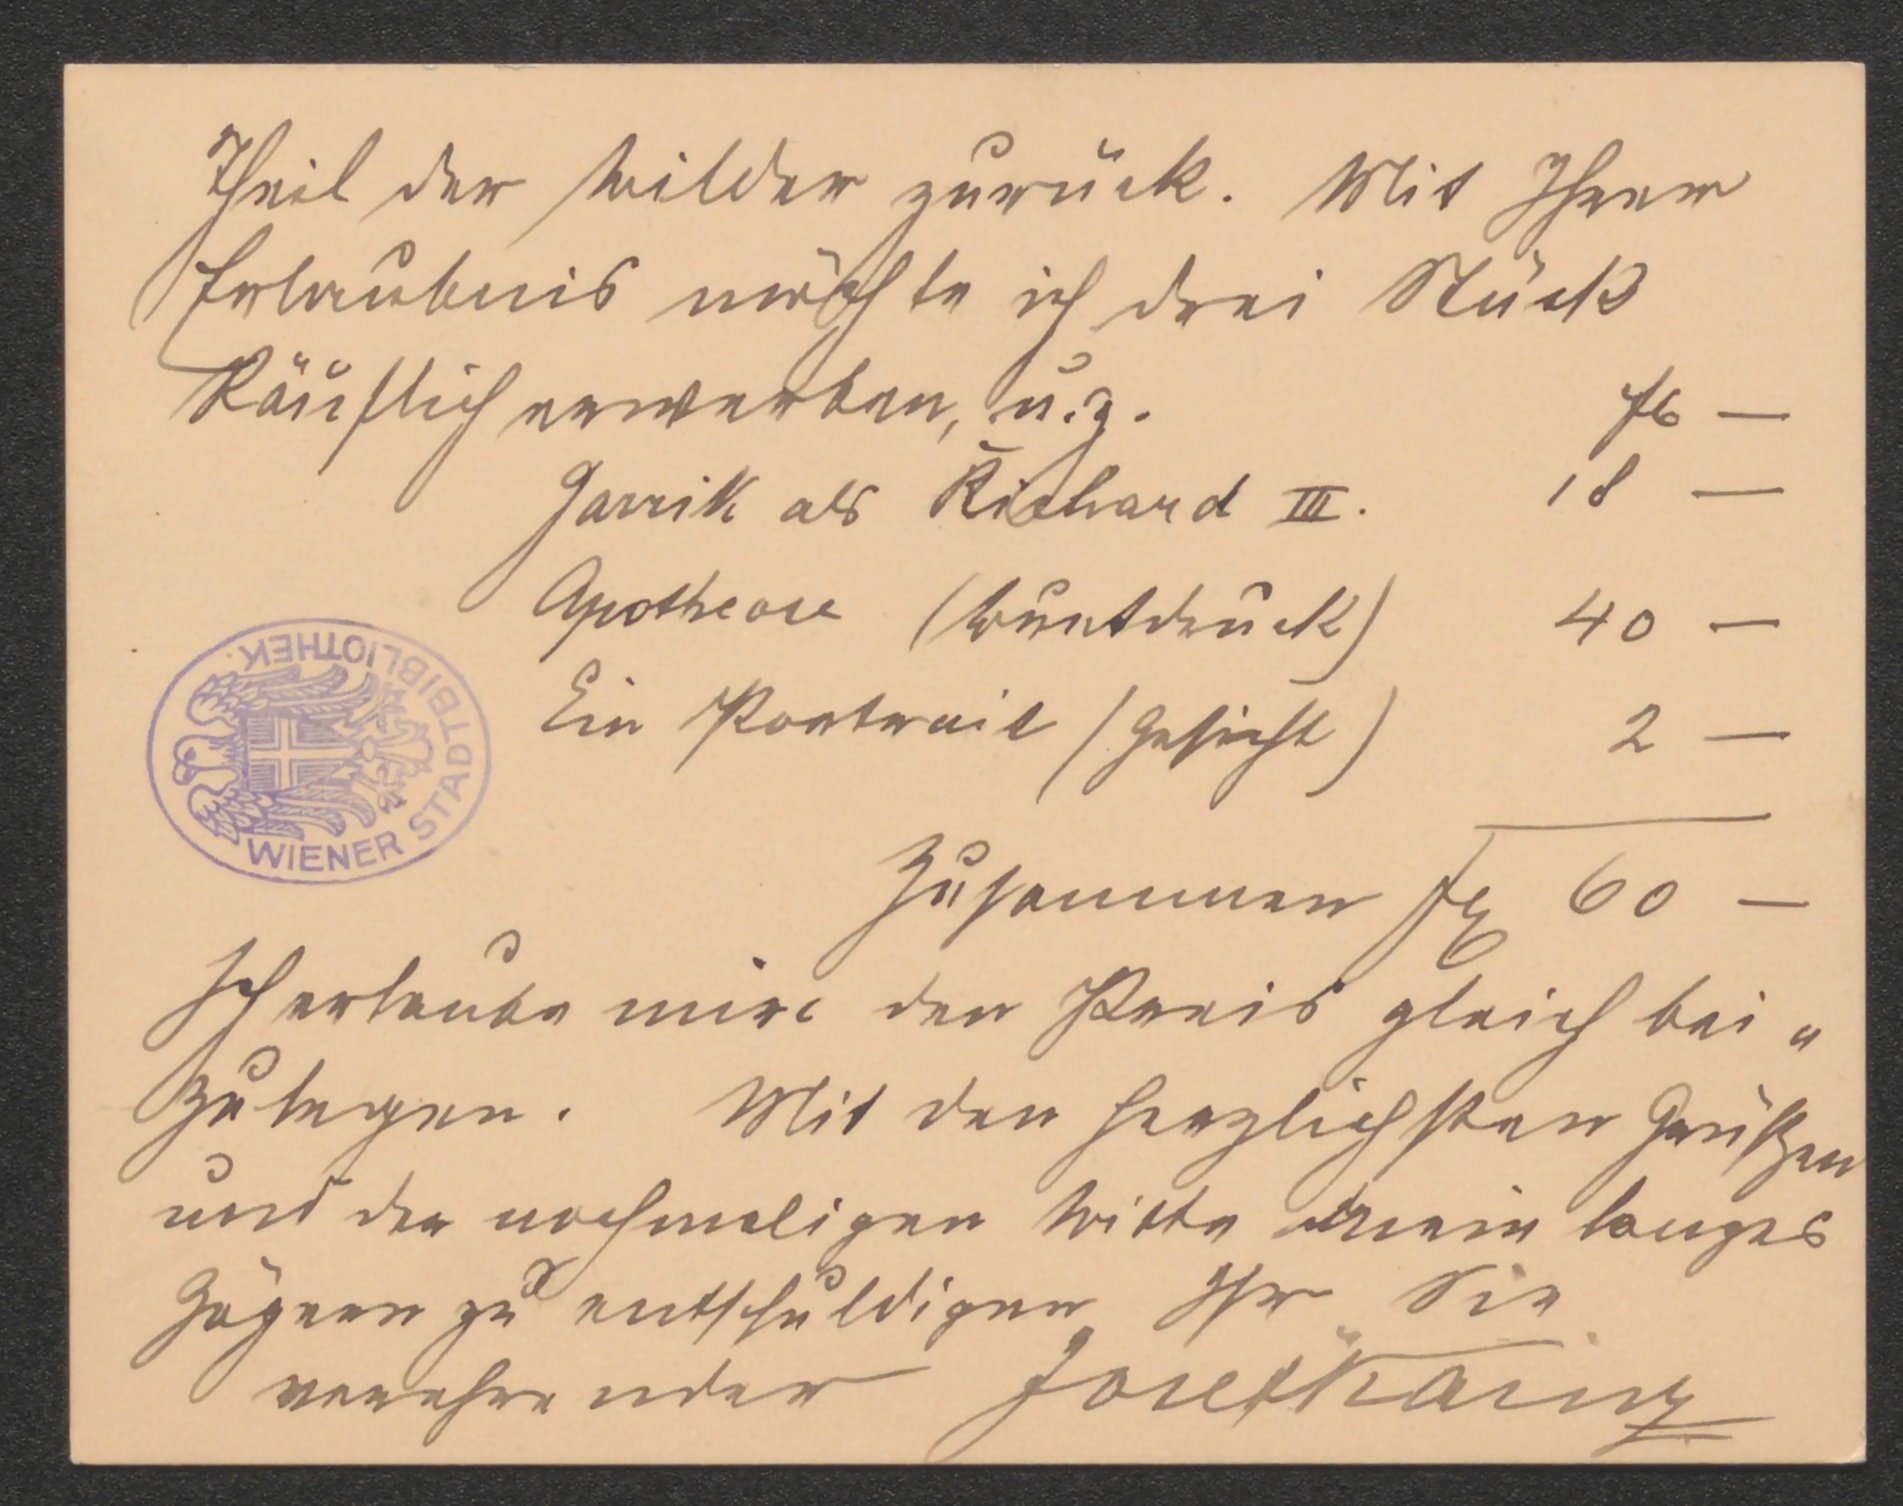 Theil der Bilder zurück. Mit Ihrer
Erlaubnis möchte ich drei Stück
käuflich erwerben, u. z.
fl —
Garrik als Richard III. 18 —
Apotheose (Buntdruck) 40 —
Ein Portrait (Gesicht) 2 —
Zusammen fl 60 —
Ich erlaube mir den Preis gleich bei„
zulegen. Mit den herzlichsten Grüßen
und der nochmaligen Bitte mein langes
Zögern zu entschuldigen Ihr Sie
verehrender Josef Kainz
WIENER STADTBIBLIOTHEK.